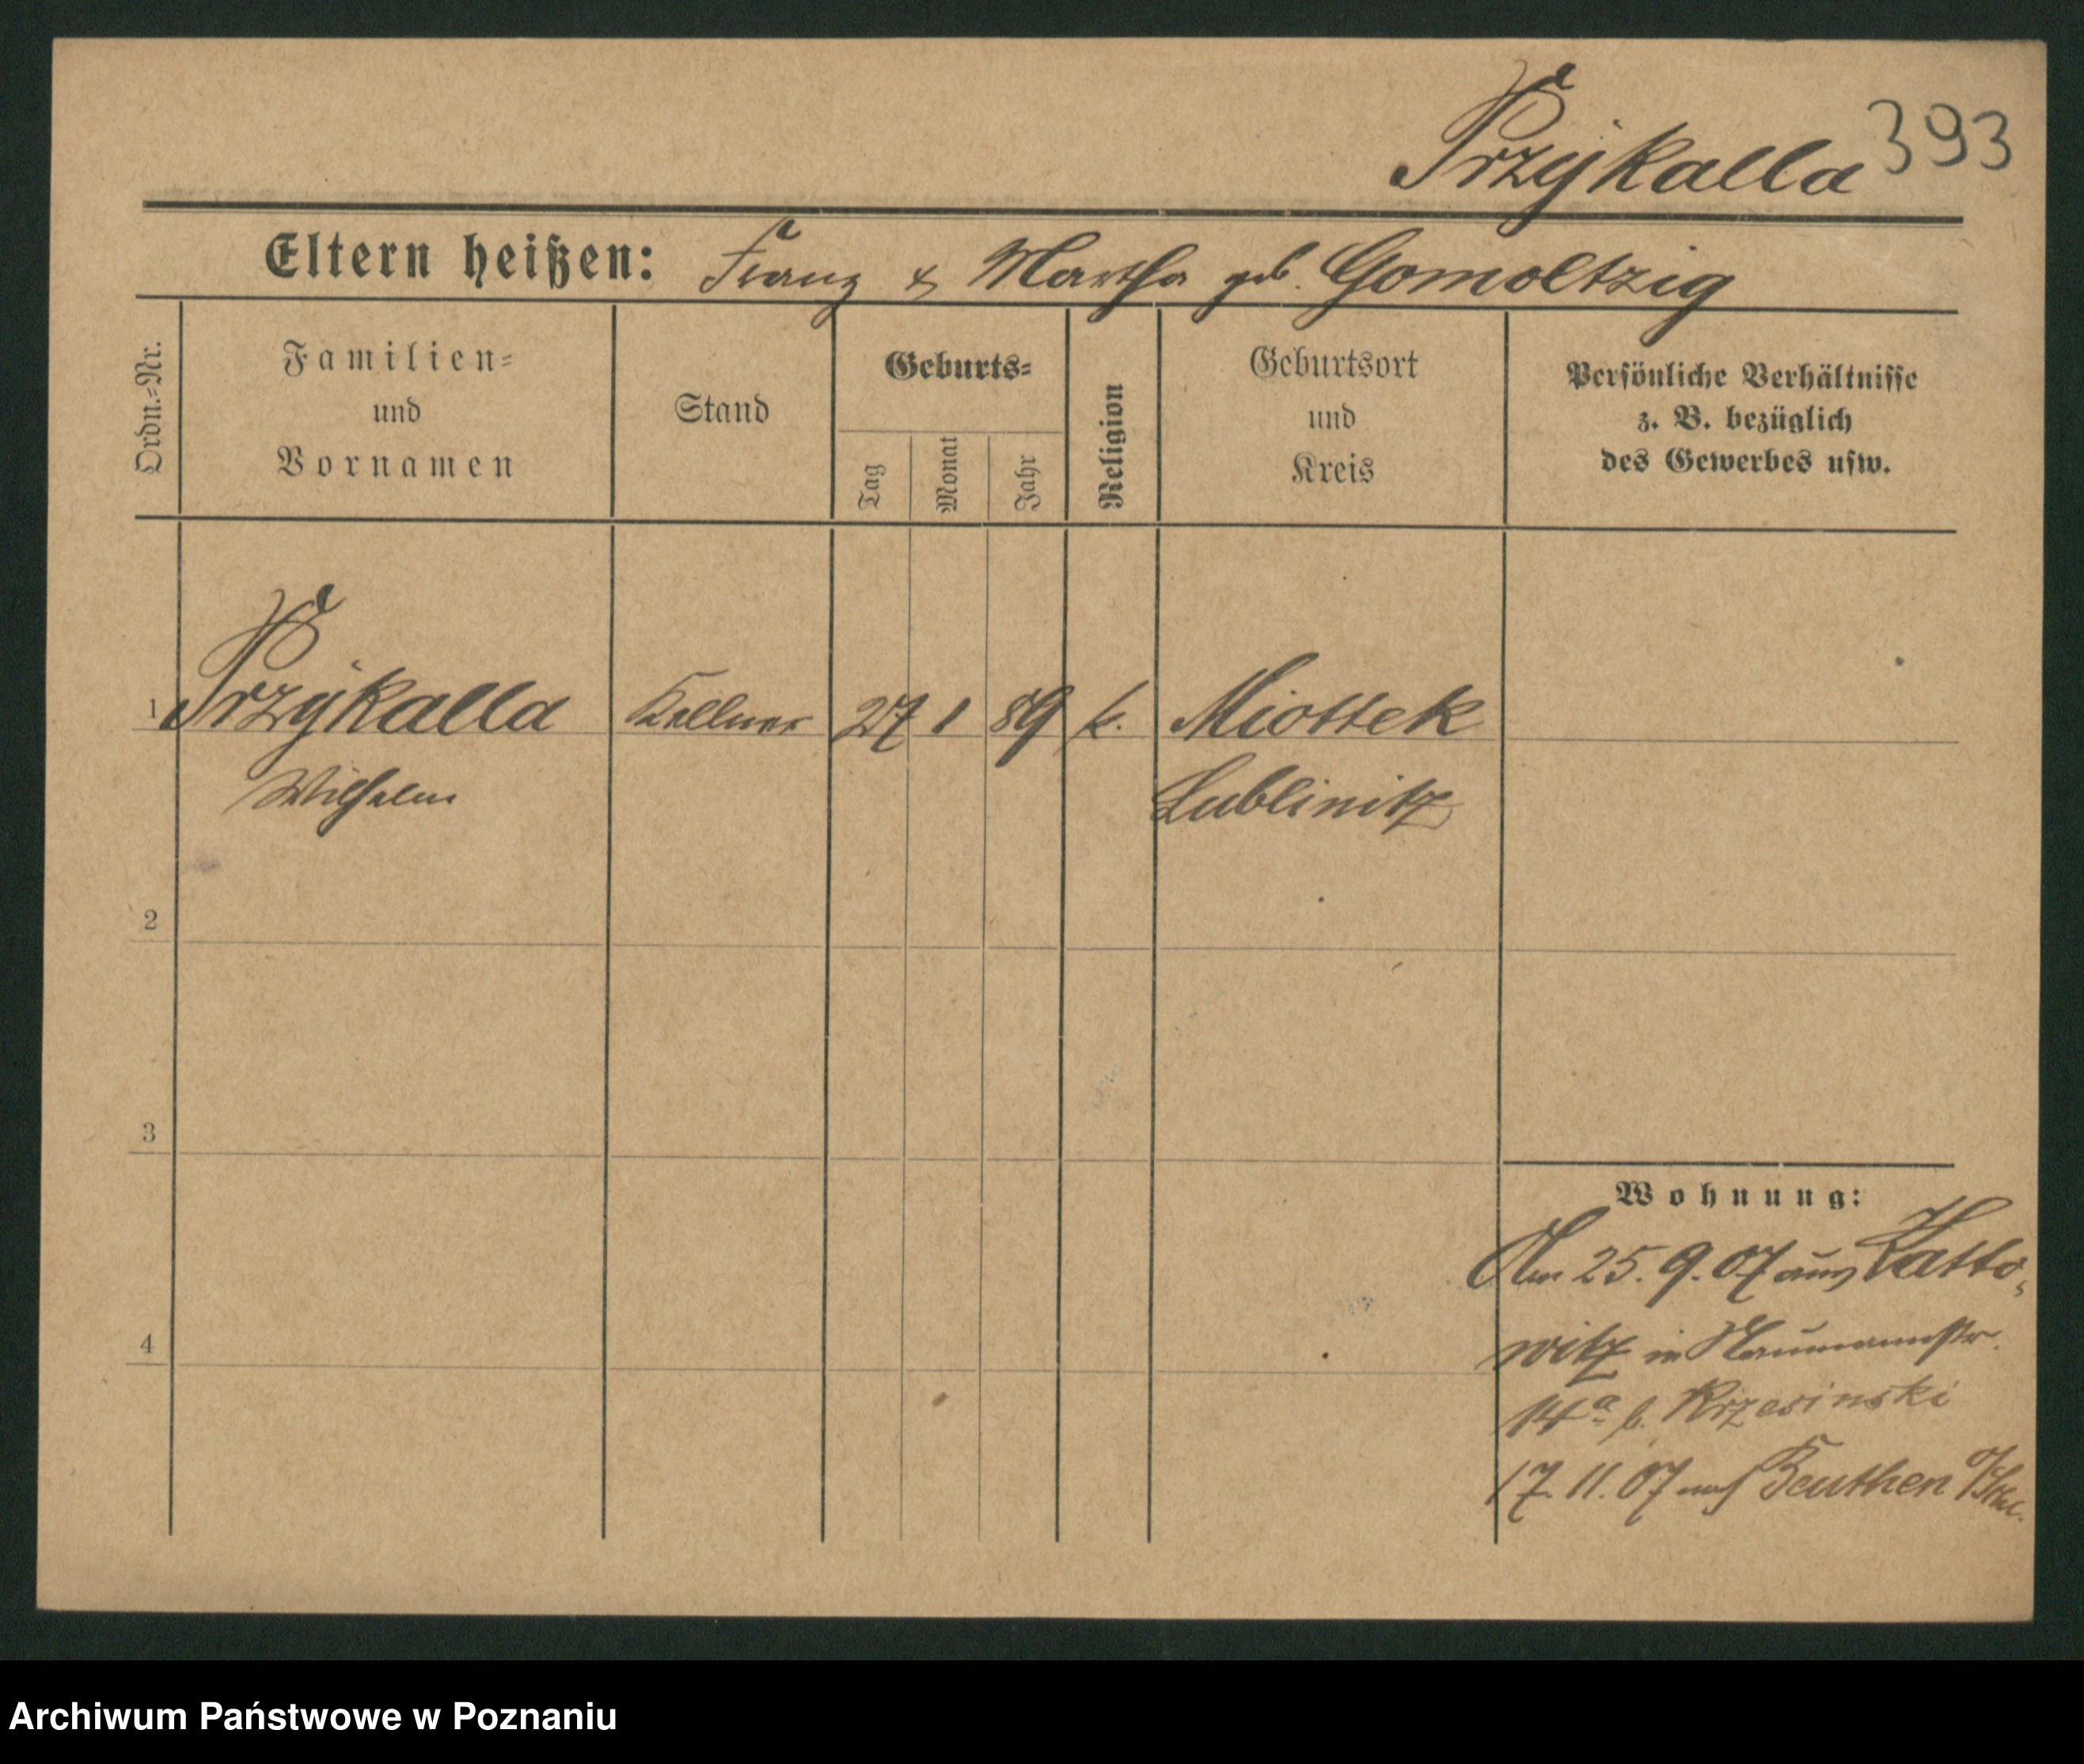 Przykalla 393
Eltern heißen: Franz & Martha geb. Gomoltzig
Ordn.-Nr.
Familien-
und
Vornamen
Stand
Geburts-
Tag
Monat
Jahr
Religion
Geburtsort
und
Kreis
Persönliche Verhältnisse
z. B. bezüglich
des Gewerbes usw.
1 Przykalla Kellner 27 1 89 k. Miottek
Wilhelm Lublinitz
2
3
4
Wohnung:
Am 25. 9. 07 aus Katto-
witz in Naumannstr.
14a b. Krzesinski
17. 11. 07 nach Beuthen
Archiwum Państwowe w Poznaniu